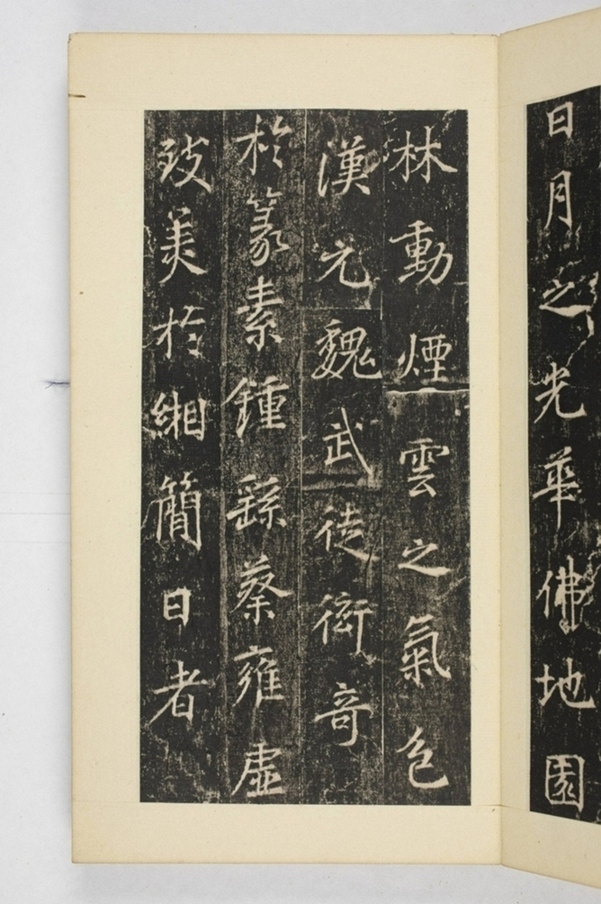 日月之光華佛地園
林動煙雲之氣色
漢元魏武徒衒奇
於篆素鍾繇蔡邕虛
致美於緗簡日者